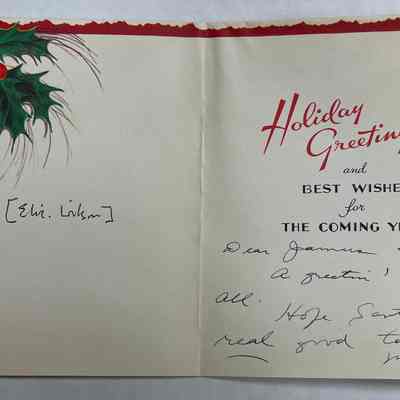 [Eliz.
Holiday
Greetin
and
BEST WISHE
for
THE COMING YE
Dear
A greetin'
all. Hope Sant
real good to